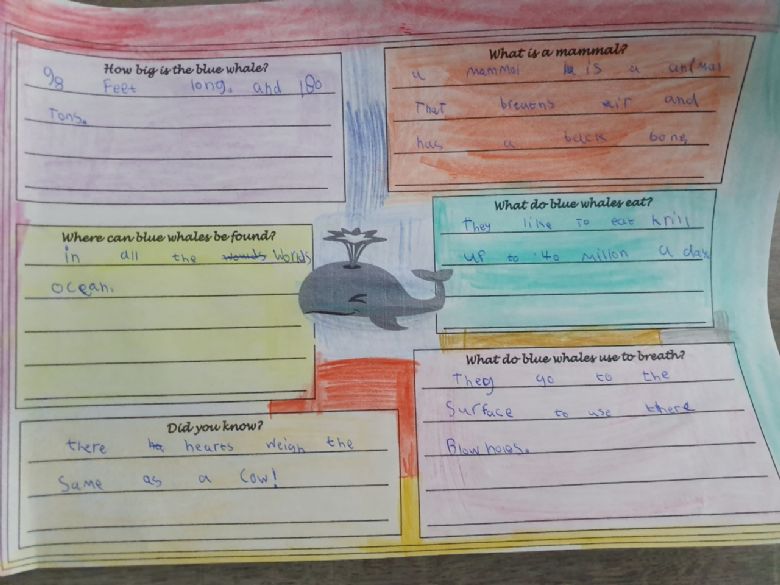 How big is the blue whale?
98 Feet long. and 180
Tons.
What is a mammal?
a mammal is a animal
That breaths air and
has a back bone
Where can blue whales be found?
in all the worlds Worlds
ocean.
What do blue whales eat?
They like To eat krill
up to 40 million a day
Did you know?
there hearts weigh the
Same as a cow!
What do blue whales use to breath?
They go to the
Surface to use there
Blow holes.